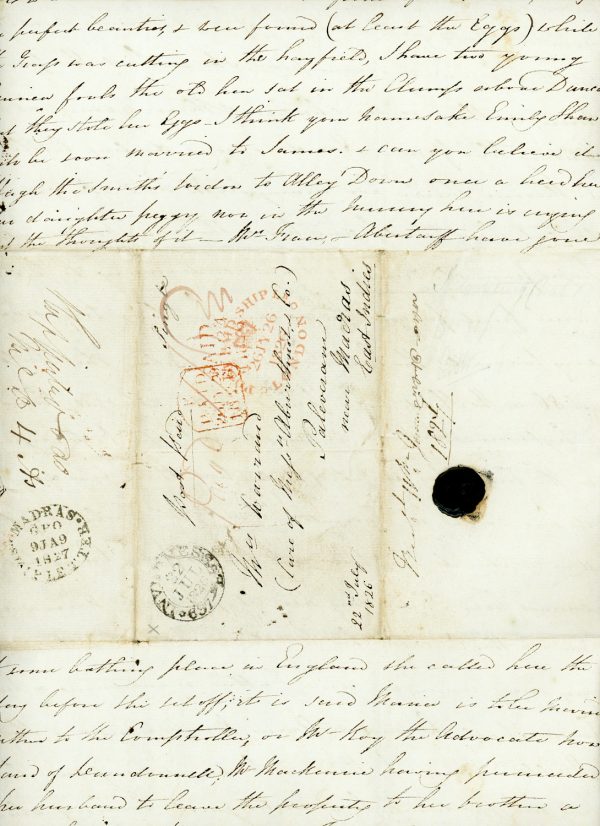 perfect beauties, & were found (at least the Eggs) while
Grass was cutting in the hayfield, I have two young
fouls the old hen sat in the Clumps above
they stole her Eggs - I think your namesake Emily Shaw
be soon married to James. & can you believe it
the Smith's widow to Alley Down once a
daughter peggy now in the Nursery here is crying
at the thoughts of it — Mrs Grant, & Abertarff have gone
4
MADRAS
GPO
9 JA 9
1827
SHIP LETTER
Single
Post Paid
Paid
SHIP
26 JY 26
LONDON
INVERNESS
22
JUL
1826
Mrs Warrand
(Care of Messrs Co.)
Palaveram
near Madras
East Indies
22nd July
1826
1827
some bathing place in England she called here the
day before she set off; it is said Maria is to be married
either to the Comptroller, or Mr Roy the Advocate now
of Mr Mackenzie having persuaded
her husband to leave the property to her brother a